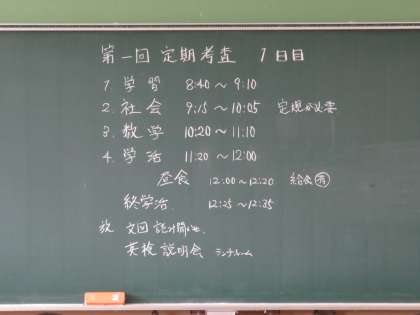 第一回 定期考査 1日目
1. 学習 8:40～9:10
2. 社会 9:15～10:05 定規必要
3. 数学 10:20～11:10
4. 学活 11:20～12:00
昼食 12:00～12:20 給食有
終学活 12:25～12:35
放 文図
英検説明会 ランチルーム